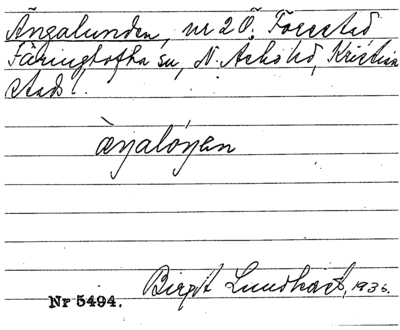 Ängalunden, nr 2 Ö. Forestad
Färingtofta sn, N. Åsbo hd, Kristian
stads l.
æŋalóŋen
Birgit Lundkvist, 1936.
Nr 5494.